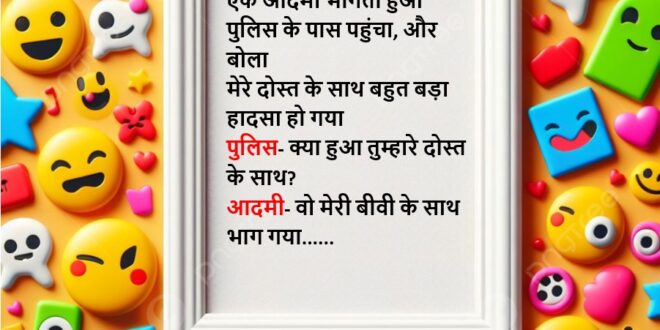 एक आदमी भागता हुआ
पुलिस के पास पहुंचा, और
बोला
मेरे दोस्त के साथ बहुत बड़ा
हादसा हो गया
पुलिस- क्या हुआ तुम्हारे दोस्त
के साथ?
आदमी- वो मेरी बीवी के साथ
भाग गया......